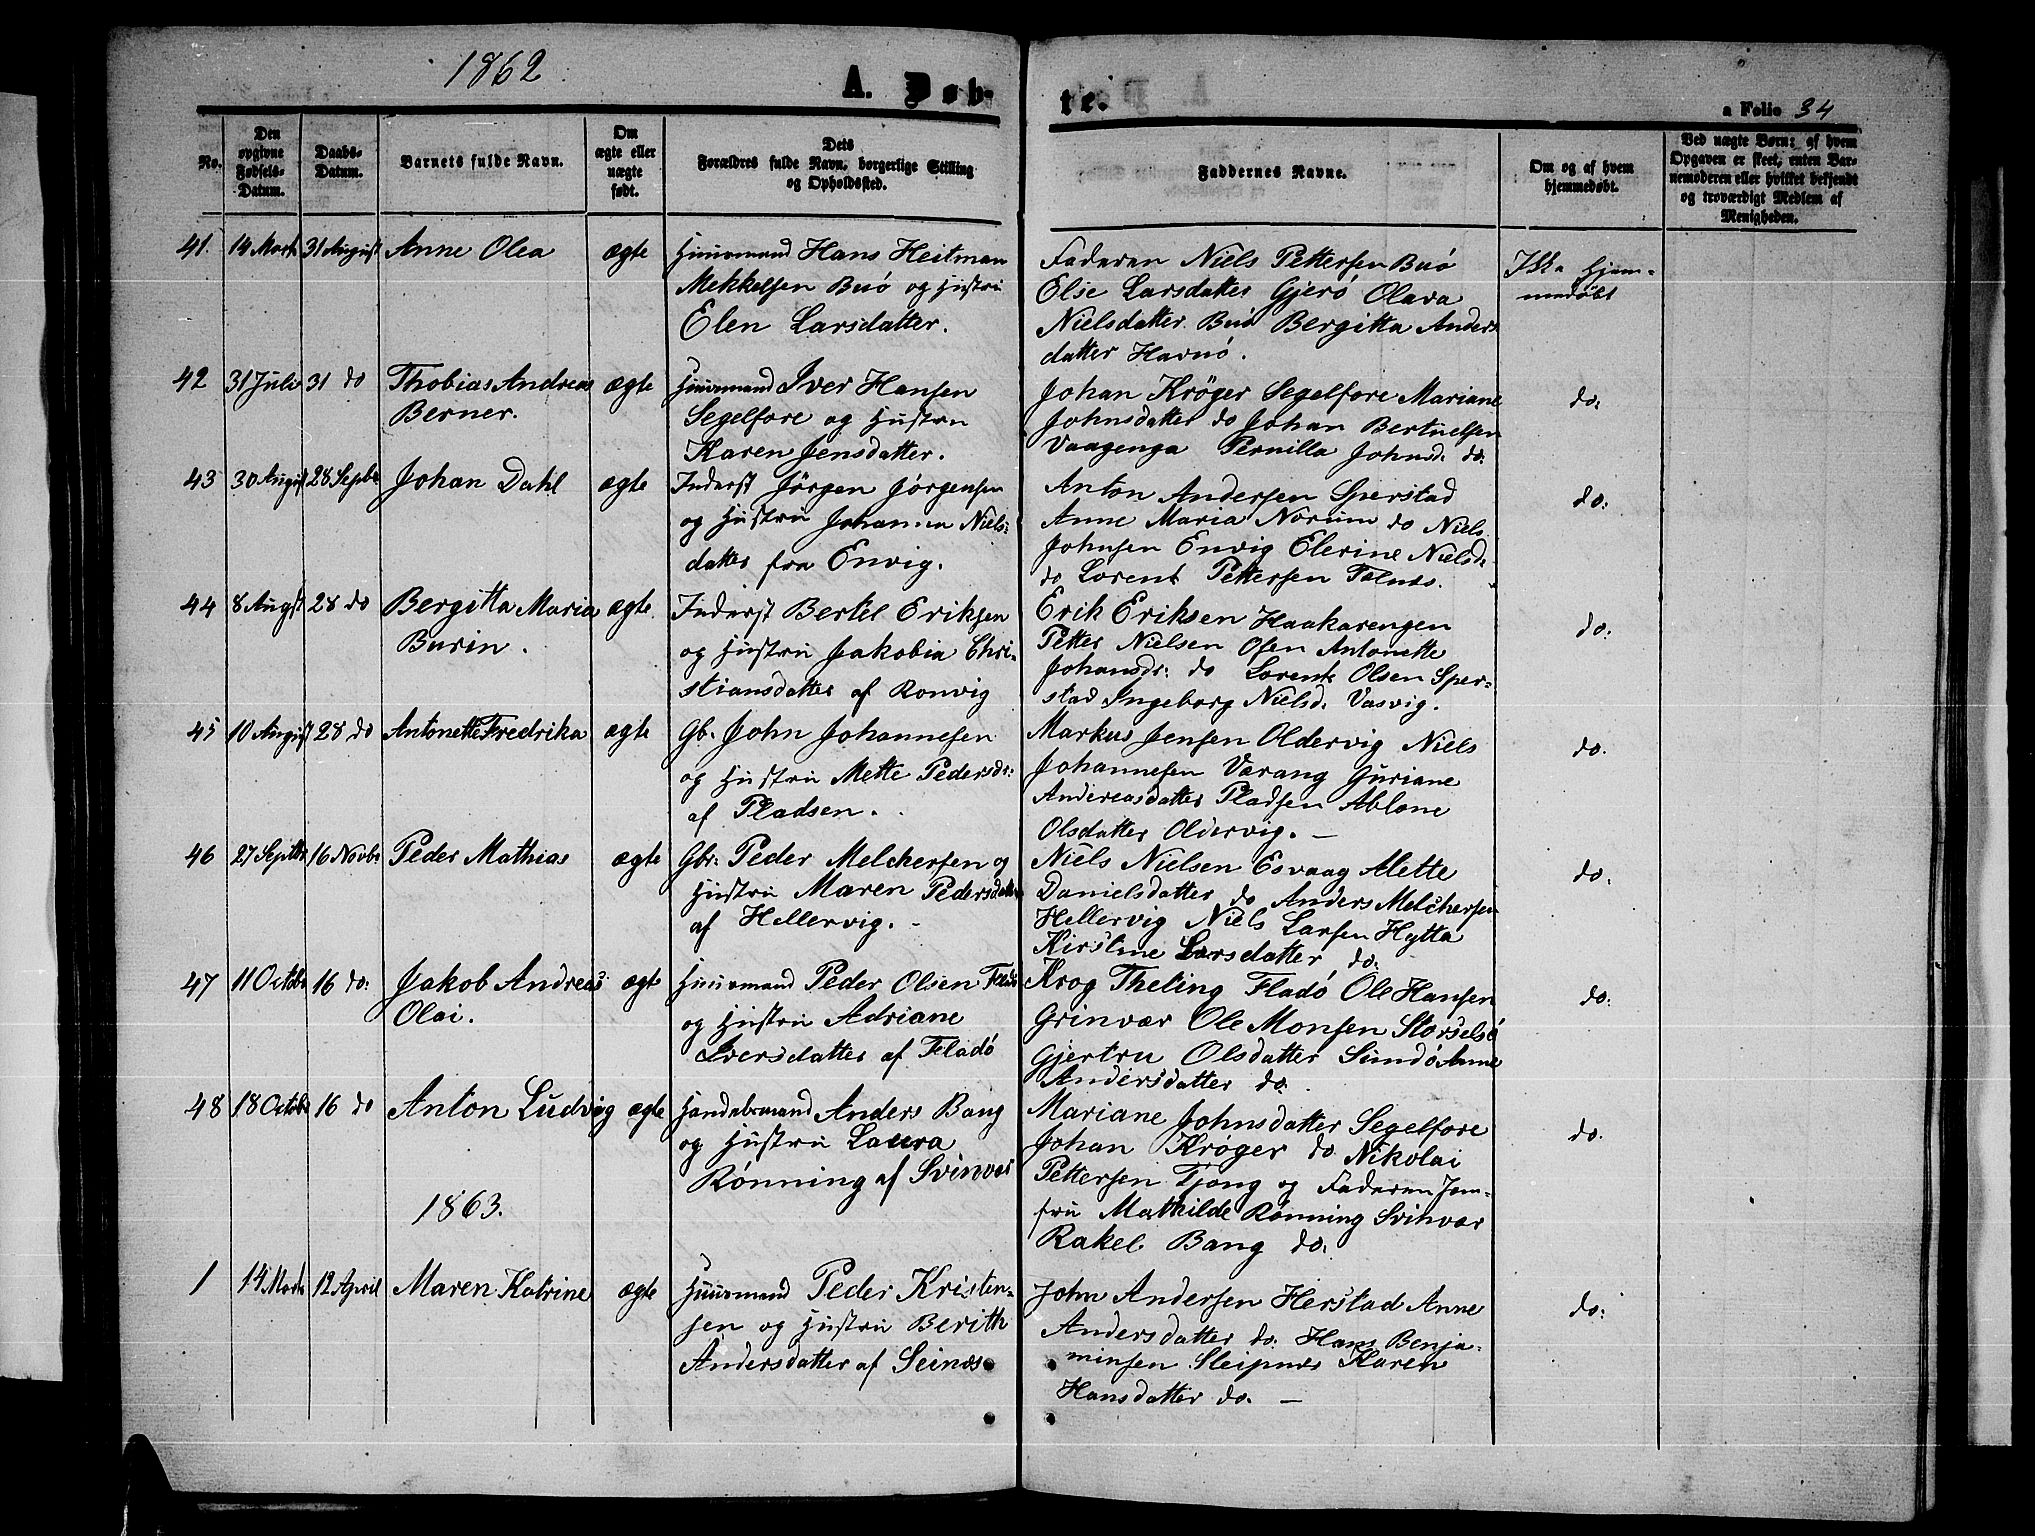 1862
A. Døb-
te.
a Folio 34
No.
Den
opgivne
Fødsels-
Datum.
Daabs-
Datum.
Barnets fulde Navn.
Om
ægte eller
uægte
født.
Dets
Forældres fulde Navn, borgerlige Stilling
og Opholdssted.
Faddernes Navne.
Om og af hvem
hjemmedøbt.
Ved uægte Børn: af hvem
Opgaven er skeet, enten Bar-
nemoderen eller hvilket bekjendt
og troværdigt Medlem af
Menigheden.
41. 14 Marts 31 August Anne Olea ægte Huusmand Hans Heitman
Mekkelsen Buø og Hustru
Elen Larsdatter.
Faderen Niels Pettersen Buø
Else Larsdatter Gjerø Olava
Nielsdatter Buø Bergitta Anders
datter Havnø.
Ikke Hjem-
medøbt
42 31 Juli 31 do Thobias Andreas
Berner.
ægte Huusmand Iver Hansen
Segelfore og Hustru
Karen Jensdatter.
Johan Krøger Segelfore Mariane
Johnsdatter do Johan Bertuelsen
Vaagenga Pernilla Johnsd. do.
do.
43 30 August 28 Septbr Johan Dahl ægte Inderst Jørgen Jørgensen
og Hustru Johanna Niels-
datter fra Envig.
Anton Andersen Sperstad
Anne Maria Norum do Niels
Johnsen Envig Elerine Nielsd.
do Lorent Pettersen Tolnes.
do.
44 8 Augst 28 do Bergitta Maria
Burin.
ægte Inderst Bertel Eriksen
og Hustru Jakobia Chri-
stiansdatter af Ronvig
Erik Eriksen Haakarengen
Petter Nielsen Osen Antonette
Johansdr. do Lorents Olsen Sper-
stad Ingeborg Nielsd. Vasvig.
do.
45 10 August 28 do Antonette Fredrika ægte Gb. John Johannesen
og Hustru Mette Pedersdr:
af Pladsen.
Markus Jensen Oldervig Niels
Johannesen Værang Guriane
Andreasdatter Pladsen Ablone
Olsdatter Oldervig. –
do.
46 27 Septbr 16 Novbr Peder Mathias ægte Gbr. Peder Melchersen og
Hustru Maren Pedersdatter
af Hellervig. –
Niels Nielsen Esvaag Alette
Danielsdatter do Anders Melchersen
Hellervig Niels Larsen Hytta
Kirstine Larsdatter do.
do.
47 11 Octobr 16 do. Jakob Andreas
Olai.
ægte Huusmand Peder Olsen Fladø
og Hustru Adriane
Iversdatter af Fladø
Krog Theling Fladø Ole Hansen
Grinvær Ole Monsen Storselsø
Gjertru Olsdatter Sundø Anne
Andersdatter do.
do.
48 18 Octobr 16 do Anton Ludvig ægte Handelsmand Anders Bang
og Hustru Laura
Rønning af Svinvær
Mariane Johnsdatter Segelfore
Johan Krøger do Nikolai
Pettersen Tjong og Faderen Jom-
fru Mathilde Rønning Svinvær
Rakel Bang do.
do.
1863.
1 14 Marts 12 April Maren Katrine ægte Huusmand Peder Kristen-
sen og Hustru Berith
Andersdatter af Seines
John Andersen Herstad Anne
Andersdatter do. Hans Benja-
minsen Sleipnes Karen
Hansdatter do. –
do.